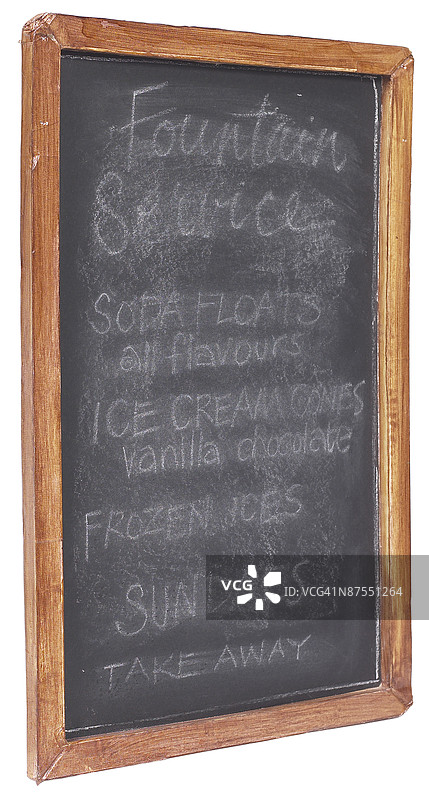 Fountain
Service
SODA FLOATS
all flavours
ICE CREAM CONES
vanilla chocolate
FROZEN ICES
SUN
TAKE AWAY
VCG
ID: VCG41N87551264